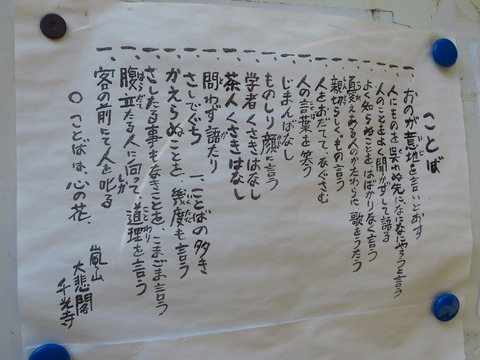 ことば
一、おのが意地を言いとおす
一、人にものを呉れぬ先になになにやろうと言う
一、人のことをよく聞かずして語る
一、よく知らぬことをはばかりなく言う
一、憂ある人のかたわらに歌をうたう
一、親切らしくもの言う
一、人をおだてて、なぐさむ
一、人の言葉を笑う
一、じまんばなし
一、ものしり顔に言う
一、学者くさきはなし
一、茶人くさきはなし
一、問わず語たり
一、さしでぐち 一、ことばの多き
一、かえらぬことを、幾度も言う
一、さしたる事もなきことを、こまごま言う
一、腹立たる人に向って、道理を言う
一、客の前にて人を叱る
○ことばは、心の花。
嵐山
大悲閣
千光寺